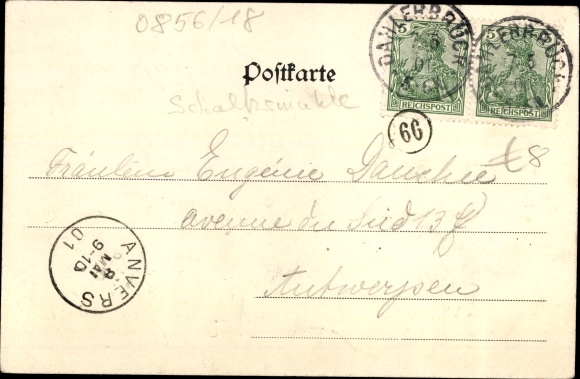 0856/18
5
5
DAHLERBRÜCK
DAHLERBRÜCK
REICHSPOST
REICHSPOST
Postkarte
Schalksmühle
66
Fräulein Eugénie
8
avenue du Sud 13
Antwerpen
ANVERS
8 MAI
9-10
01